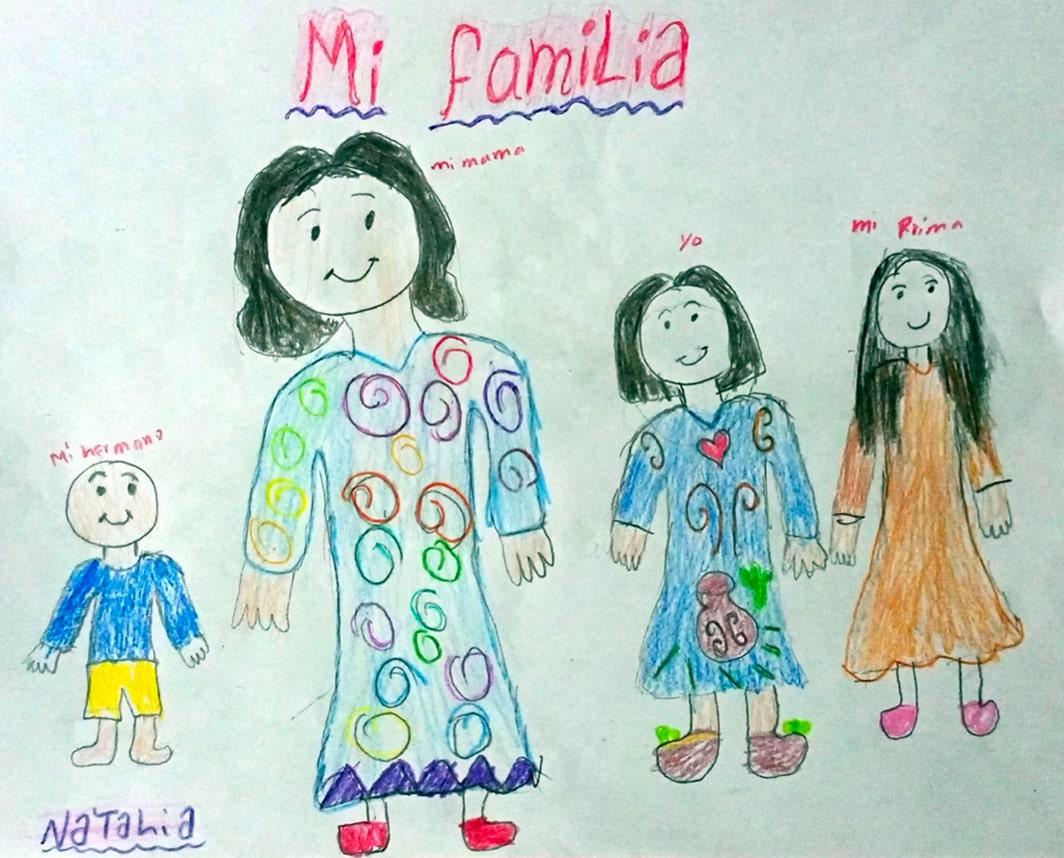 Mi familia
mi mama
Yo
mi Prima
Mi hermano
Natahia